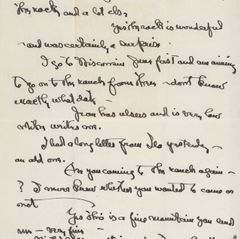 this rock and a lot else,
Yes this rock is wonderful
and was certainly a surprise.
I go to Wisconsin June first and am aiming
to go on to the ranch from there - don't know
exactly what date
Jean has ulcers and is very low
when writes one.
I had a long letter from Ila yesterday -
an odd one.
Are you coming to the ranch again -
? I never knew whether you wanted to come or
not
Yes this is a fine mountain you and
me - very fine -